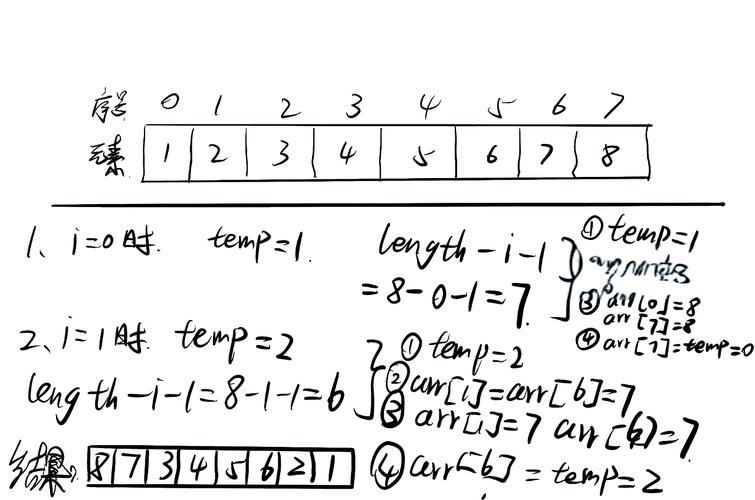 序号 0 1 2 3 4 5 6 7
元素 1 2 3 4 5 6 7 8
1、i=0时. temp=1.
length-i-1
=8-0-1=7.
①temp=1
③arr[0]=8
arr[7]=8
④arr[7]=temp=0
2、i=1时. temp=2
length-i-1=8-1-1=6
①temp=2
②arr[1]=arr[6]=7
③arr[1]=7 arr[6]=7
④arr[6]=temp=2
结果: 8 7 3 4 5 6 2 1